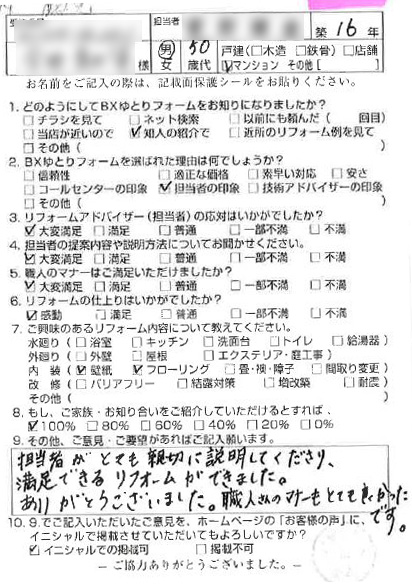 担当者
築 16 年
様 男 女 50 歳代 戸建(□木造 □鉄骨) □店舗
☑マンション その他[ ]
お名前をご記入の際は、記載面保護シールをお貼りください。
1. どのようにしてBXゆとりフォームをお知りになりましたか?
□チラシを見て □ネット検索 □以前にも頼んだ( 回目)
□当店が近いので ☑知人の紹介で □近所のリフォーム例を見て
□その他( )
2. BXゆとりフォームを選ばれた理由は何でしょうか?
□信頼性 □適正な価格 □素早い対応 □安さ
□コールセンターの印象 ☑担当者の印象 □技術アドバイザーの印象
□その他( )
3. リフォームアドバイザー(担当者)の応対はいかがでしたか?
☑大変満足 □満足 □普通 □一部不満 □不満
4. 担当者の提案内容や説明方法についてお聞かせください。
☑大変満足 □満足 □普通 □一部不満 □不満
5. 職人のマナーはご満足いただけましたか?
☑大変満足 □満足 □普通 □一部不満 □不満
6. リフォームの仕上りはいかがでしたか?
☑感動 □満足 □普通 □一部不満 □不満
7. ご興味のあるリフォーム内容について教えてください。
水廻り(□浴室 □キッチン □洗面台 □トイレ □給湯器)
外廻り(□外壁 □屋根 □エクステリア・庭工事)
内 装(☑壁紙 ☑フローリング □畳・襖・障子 □間取り変更)
改 修(□バリアフリー □結露対策 □増改築 □耐震)
その他( )
8. もし、ご家族・お知り合いをご紹介していただけるとすれば、
☑100% □80% □60% □40% □20% □0%
9. その他、ご意見・ご要望があればご記入願います。
担当者がとても親切に説明してくださり、
満足できるリフォームができました。
ありがとうございました。職人さんのマナーもとても良かった
です。
10. 9.でご記入いただいたご意見を、ホームページの「お客様の声」に、
イニシャルで掲載させていただいてもよろしいですか?
☑イニシャルでの掲載可 □掲載不可
― ご協力ありがとうございました。―